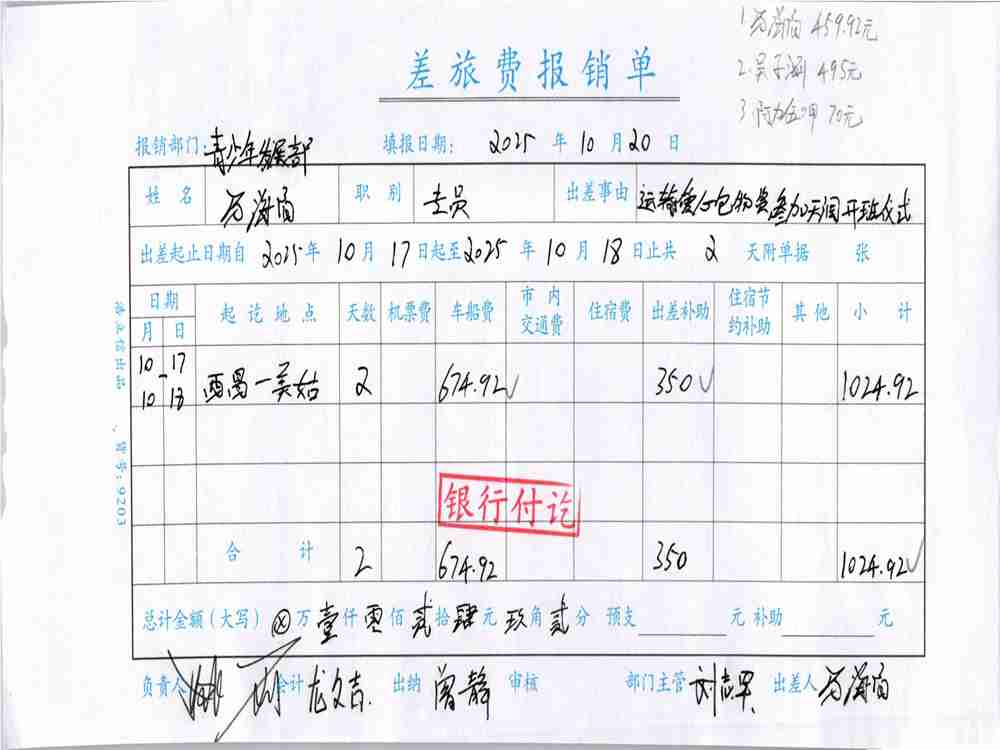 1. 459.92元
2. 吴子 495元
3. 70元
差旅费报销单
报销部门：青少年发展部 填报日期： 2025 年 10 月 20 日
姓名 海 职别 专员 出差事由 运输爱心包物资参加天润开班仪式
出差起止日期自 2025 年 10 月 17 日起至 2025 年 10 月 18 日止共 2 天附单据 张
日期 起讫地点 天数 机票费 车船费 市内交通费 住宿费 出差补助 住宿节约补助 其他 小计
月 日
10 17 - 10 18 西昌—美姑 2 674.92 350 1024.92
银行付讫
合计 2 674.92 350 1024.92
总计金额（大写） ⊗ 万 壹 仟 零 佰 贰 拾 肆 元 玖 角 贰 分 预支 元 补助 元
负责人 会计 龙文吉 出纳 曾静 审核 部门主管 刘志军 出差人 海
货号：9203